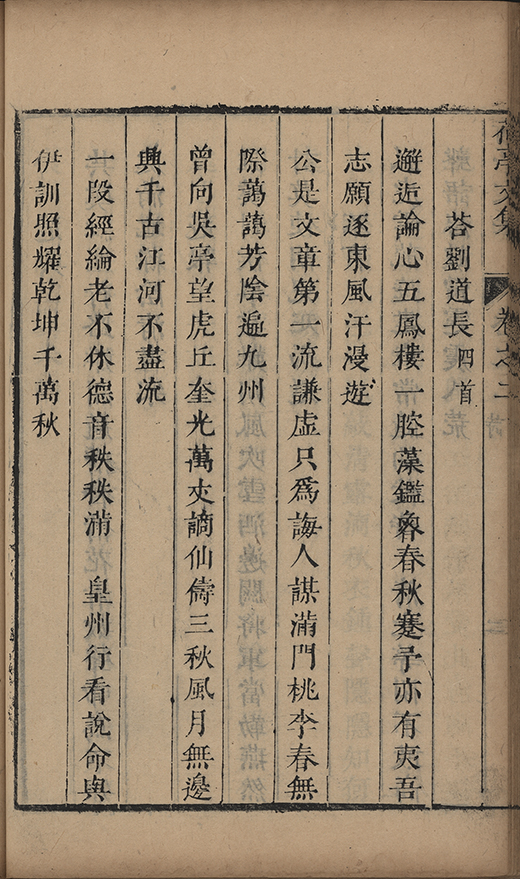 荷亭文集 卷之二
荅劉道長四首
邂逅論心五鳳樓一腔藻鑑魯春秋蹇予亦有夷吾
志願逐東風汗漫遊
公是文章第一流謙虛只爲誨人謀滿門桃李春無
際藹藹芳陰遍九州
曾向吳亭望虎丘奎光萬丈謫仙儔三秋風月無邊
興千古江河不盡流
一段經綸老不休德音秩秩滿 皇州行看說命與
伊訓照耀乾坤千萬秋